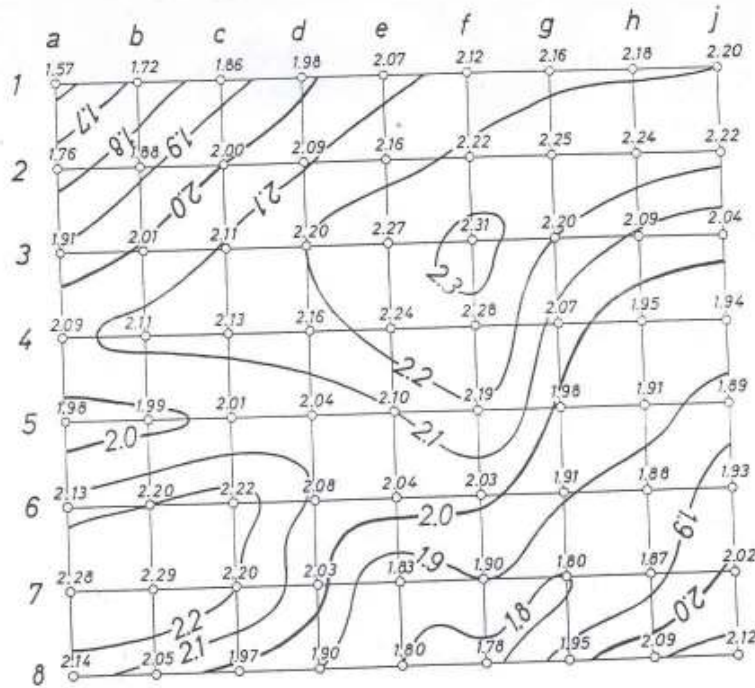 a b c d e f g h j
1 1.57 1.72 1.86 1.98 2.07 2.12 2.16 2.18 2.20
1.7 1.8 1.9
2 1.76 1.88 2.00 2.09 2.16 2.22 2.25 2.24 2.22
2.0 2.1
3 1.91 2.01 2.11 2.20 2.27 2.31 2.20 2.09 2.04
2.3
4 2.09 2.11 2.13 2.16 2.24 2.28 2.07 1.95 1.94
2.2
5 1.98 1.99 2.01 2.04 2.10 2.19 1.98 1.91 1.89
2.0 2.1
6 2.13 2.20 2.22 2.08 2.04 2.03 1.91 1.88 1.93
2.0 1.9
1.9
7 2.28 2.29 2.20 2.03 1.83 1.90 1.80 1.87 2.02
2.2 1.8 2.0
2.1
8 2.14 2.05 1.97 1.90 1.80 1.78 1.95 2.09 2.12